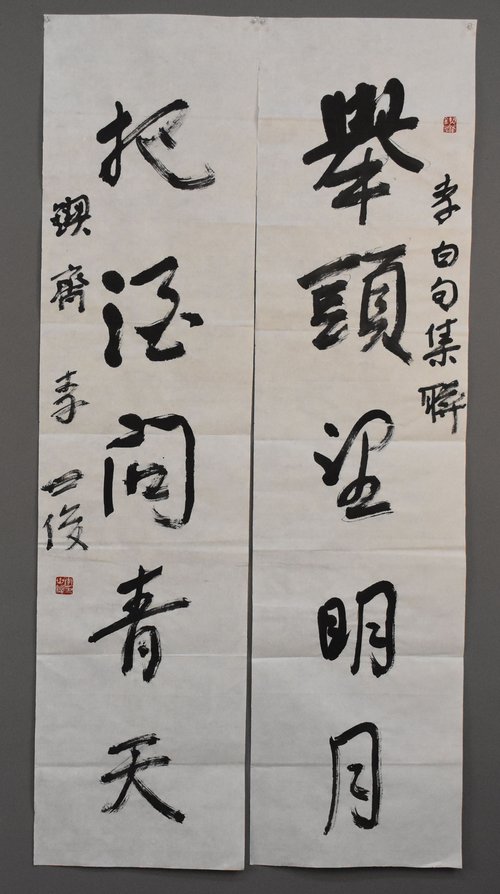 李白句集聯
舉頭望明月
把酒問青天
鍥齋 李世俊